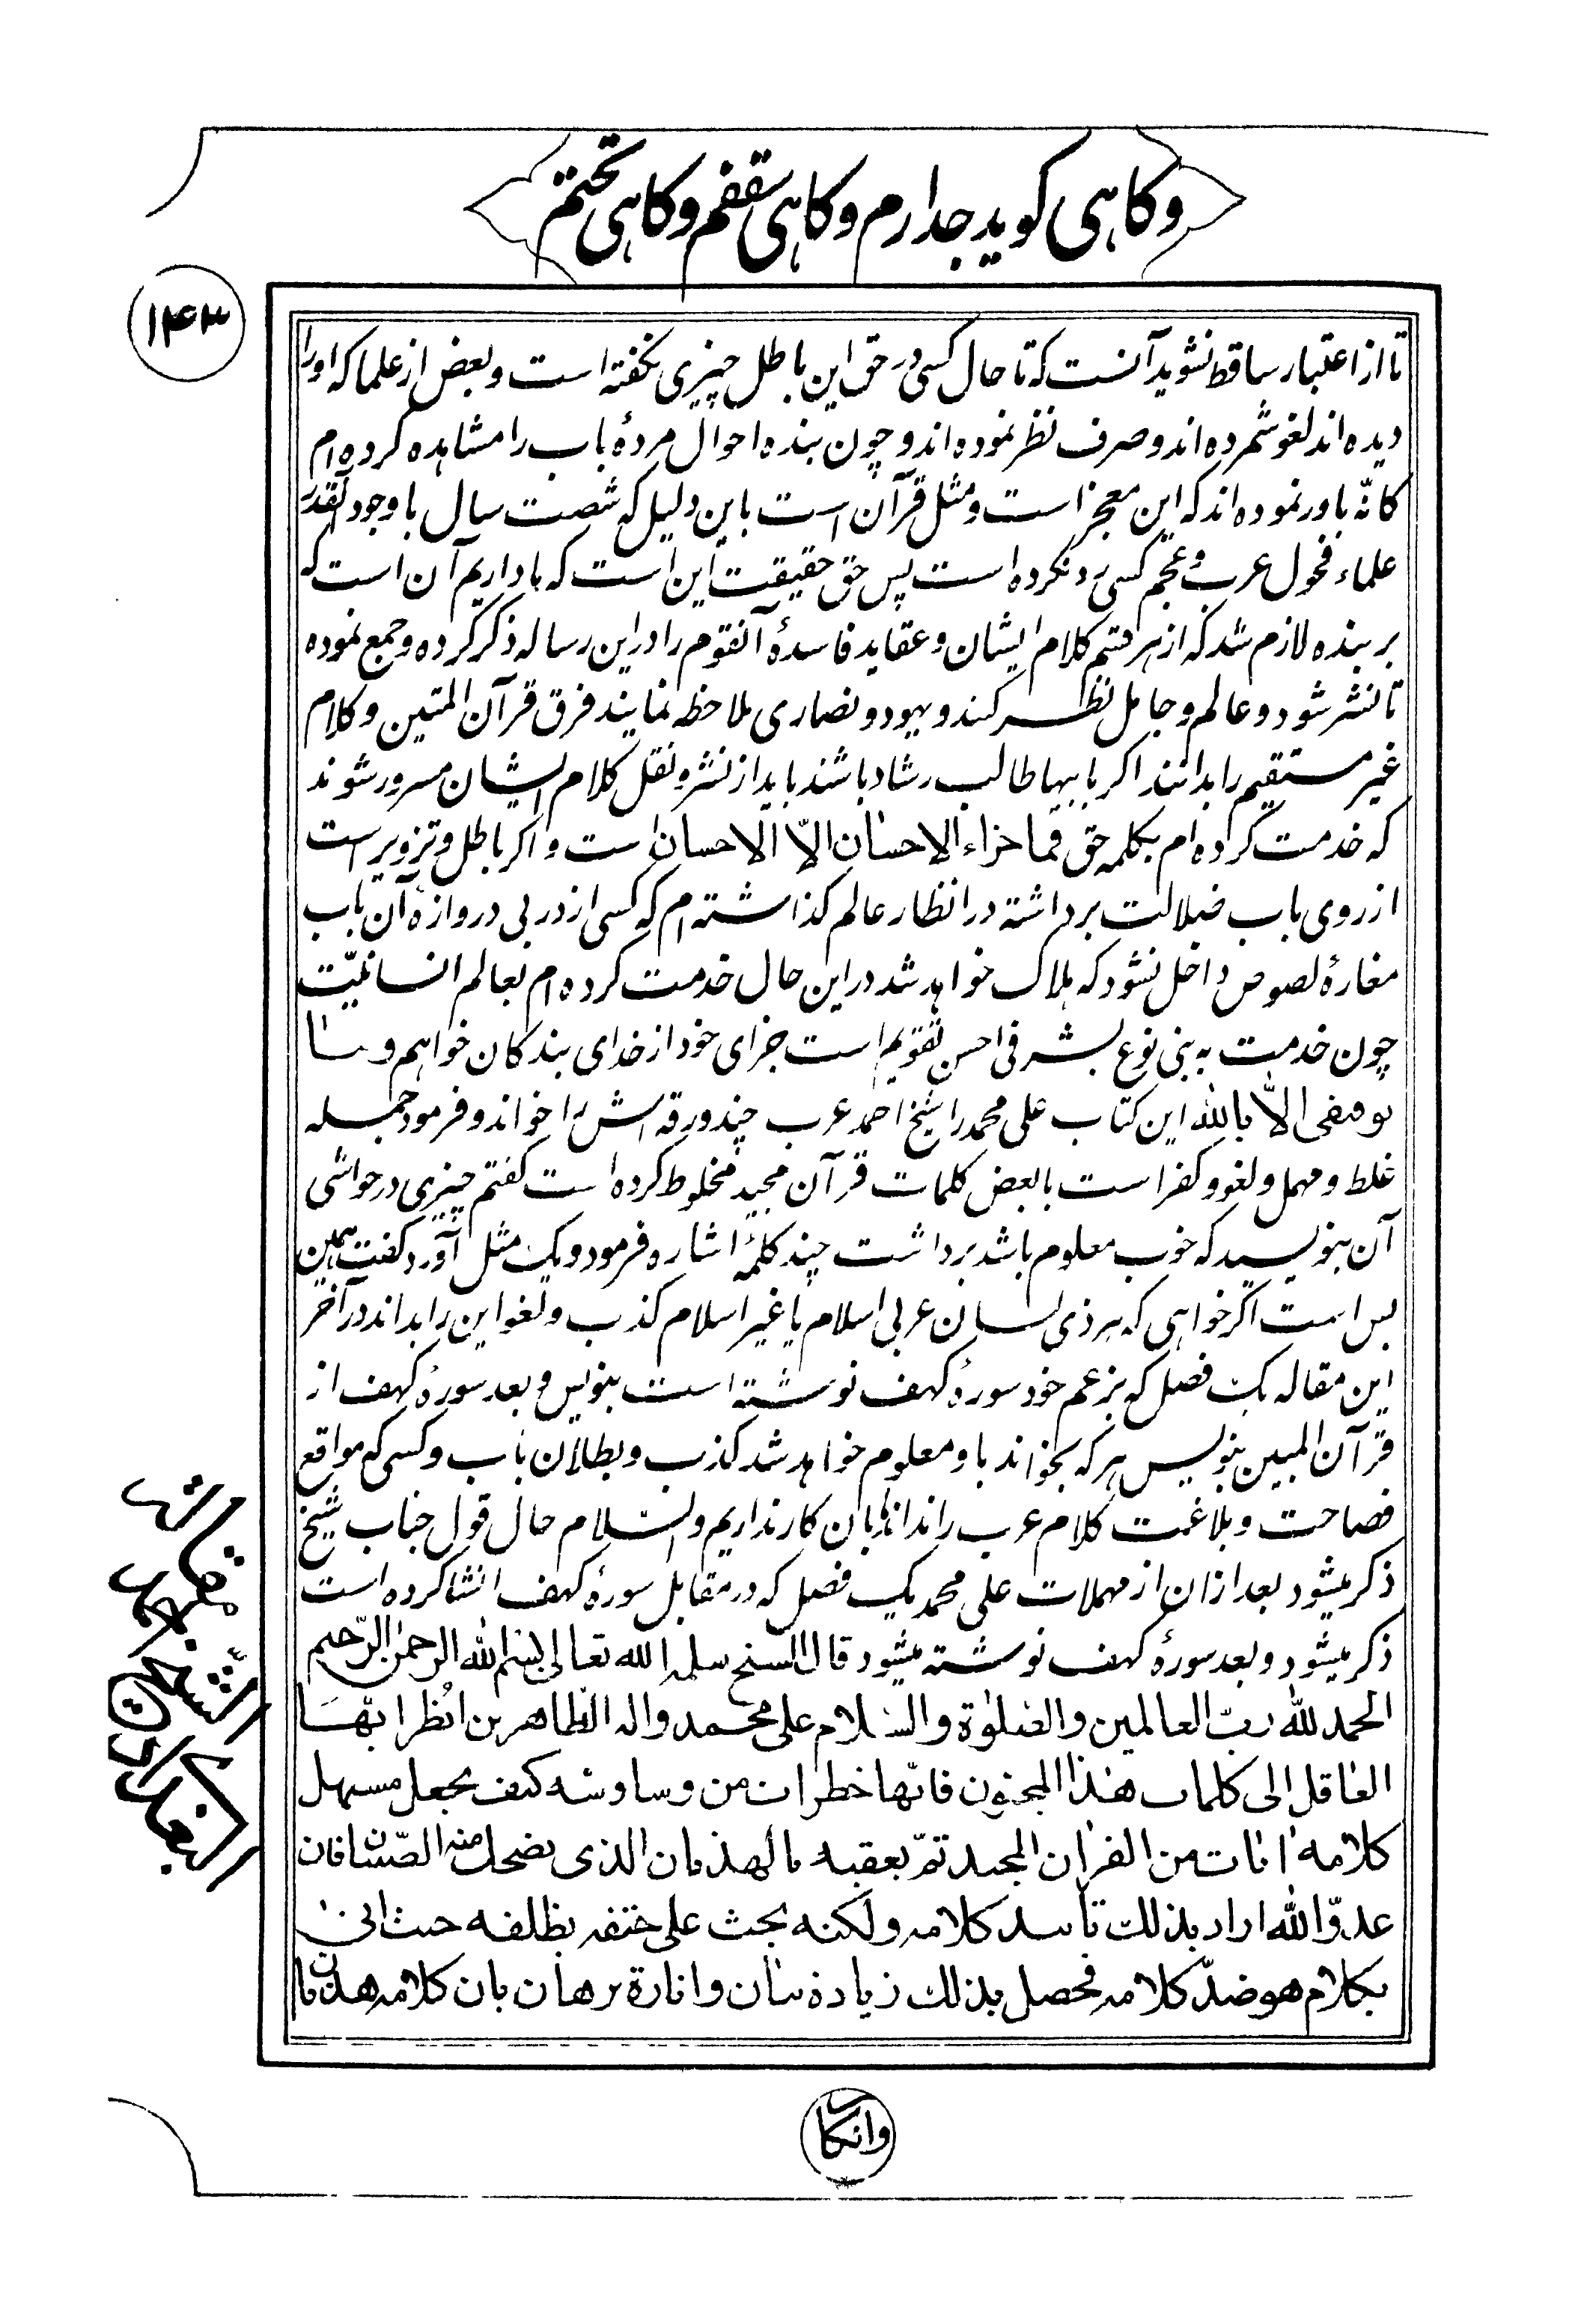 وکاهی کوید جدارم وکاهی سقفم وکاهی تختم
۱۴۳
تا از اعتبار ساقط نشوید آنست که تا حال کسی در حق این باطل چیزی نکفته است و بعض از علما که اورا
دیده اند لغو شمرده اند و صرف نظر نموده اند و چون بنده احوال مردۀ باب را مشاهده کرده ام
کانّه باور نموده اند که این معجز است و مثل قرآن است باین دلیل که شصت سال با وجود آنقدر
علماء فحول عرب و عجم کسی رد نکرده است پس حق حقیقت این است که ما داریم آن است که
بر بنده لازم شد که از هر قسم کلام ایشان و عقاید فاسدۀ آنقوم را در این رساله ذکر کرده و جمع نموده
تا نشر شود و عالم و جاهل نظر کنند و یهود و نصاری ملاحظه نمایند فرق قرآن المتین و کلام
غیر مستقیم را بدانند اکر بابیها طالب رشاد باشند باید از نشر و نقل کلام ایشان مسرور شوند
که خدمت کرده ام بکلمه حق فما جزاء الاحسان الاّ الاحسان است و اکر باطل و تزویر است
از روی باب ضلالت برداشته در انظار عالم کذاشته ام که کسی از در بی دروازۀ آن باب
مغارۀ لصوص داخل نشود که هلاک خواهد شد در این حال خدمت کرده ام بعالم انسانیّت
چون خدمت به بنی نوع بشر فی احسن تقویم است جزای خود از خدای بندکان خواهم و ما
توفیقی الاّ بالله این کتاب علی محمد را شیخ احمد عرب چند ورقه اش را خواند و فرمود جمله
غلط و مهمل و لغو و کفر است با بعض کلمات قرآن مجید مخلوط کرده است کفتم چیزی در حواشی
آن بنویسید که خوب معلوم باشد برداشت چند کلمۀ اشاره فرمود و یک مثل آورد کفت همین
بس است اکر خواهی که هر ذی لسان عربی اسلام یا غیر اسلام کذب و لغو این را بداند در آخر
این مقاله یک فصل که بزعم خود سورۀ کهف نوشته است بنویس و بعد سورۀ کهف از
قرآن المبین بنویس هر که بخواند با و معلوم خواهد شد کذب و بطلان باب و کسی که مواقع
فصاحت و بلاغت کلام عرب را نداند بان کار نداریم و السّلام حال قول جناب شیخ
ذکر میشود بعد ازان از مهملات علی محمد یک فصل که در مقابل سورۀ کهف انشا کرده است
ذکر میشود و بعد سورۀ کهف نوشته میشود قال الشیخ سلمه الله تعالی بسم الله الرحمن الرّحیم
الحمد لله ربّ العالمین و الصلوة و السّلام علی محمد واله الطاهرین انظر ایّها
العاقل الی کلمات هذا المجنون فانّها خطرات من وساوسه کیف یجعل مسهل
کلامه ایات من القران المجید ثمّ یعقبه بالهذیان الذی یضحک منه الصّبیان فان
عدوّ الله اراد بذلک تأیید کلامه ولکنه بحث علی حتفه بظلفه حیث اتی
بکلام هو ضدّ کلامه فحصل بذلک زیادة بیان و انارة برهان بان کلامه هذیان
مقالة
الشیخ احمد
البغدادی
وانکا